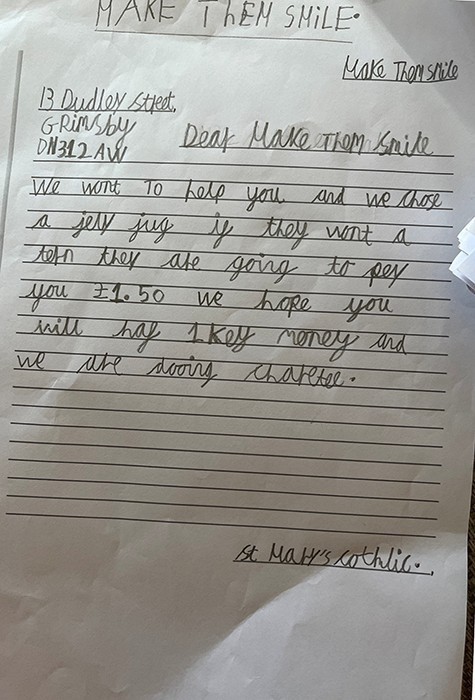 MAKE ThEM SMILE.
Make Them smile
13 Dudley street,
GRimsby
DN312AW
Dear Make Them Smile
We wont To help you and we chose
a jely jug if they wont a
tern they are going to pey
you £1.50 we hope you
will haf 1Key money and
we are dooing charetee.
st Mary's cothlic.